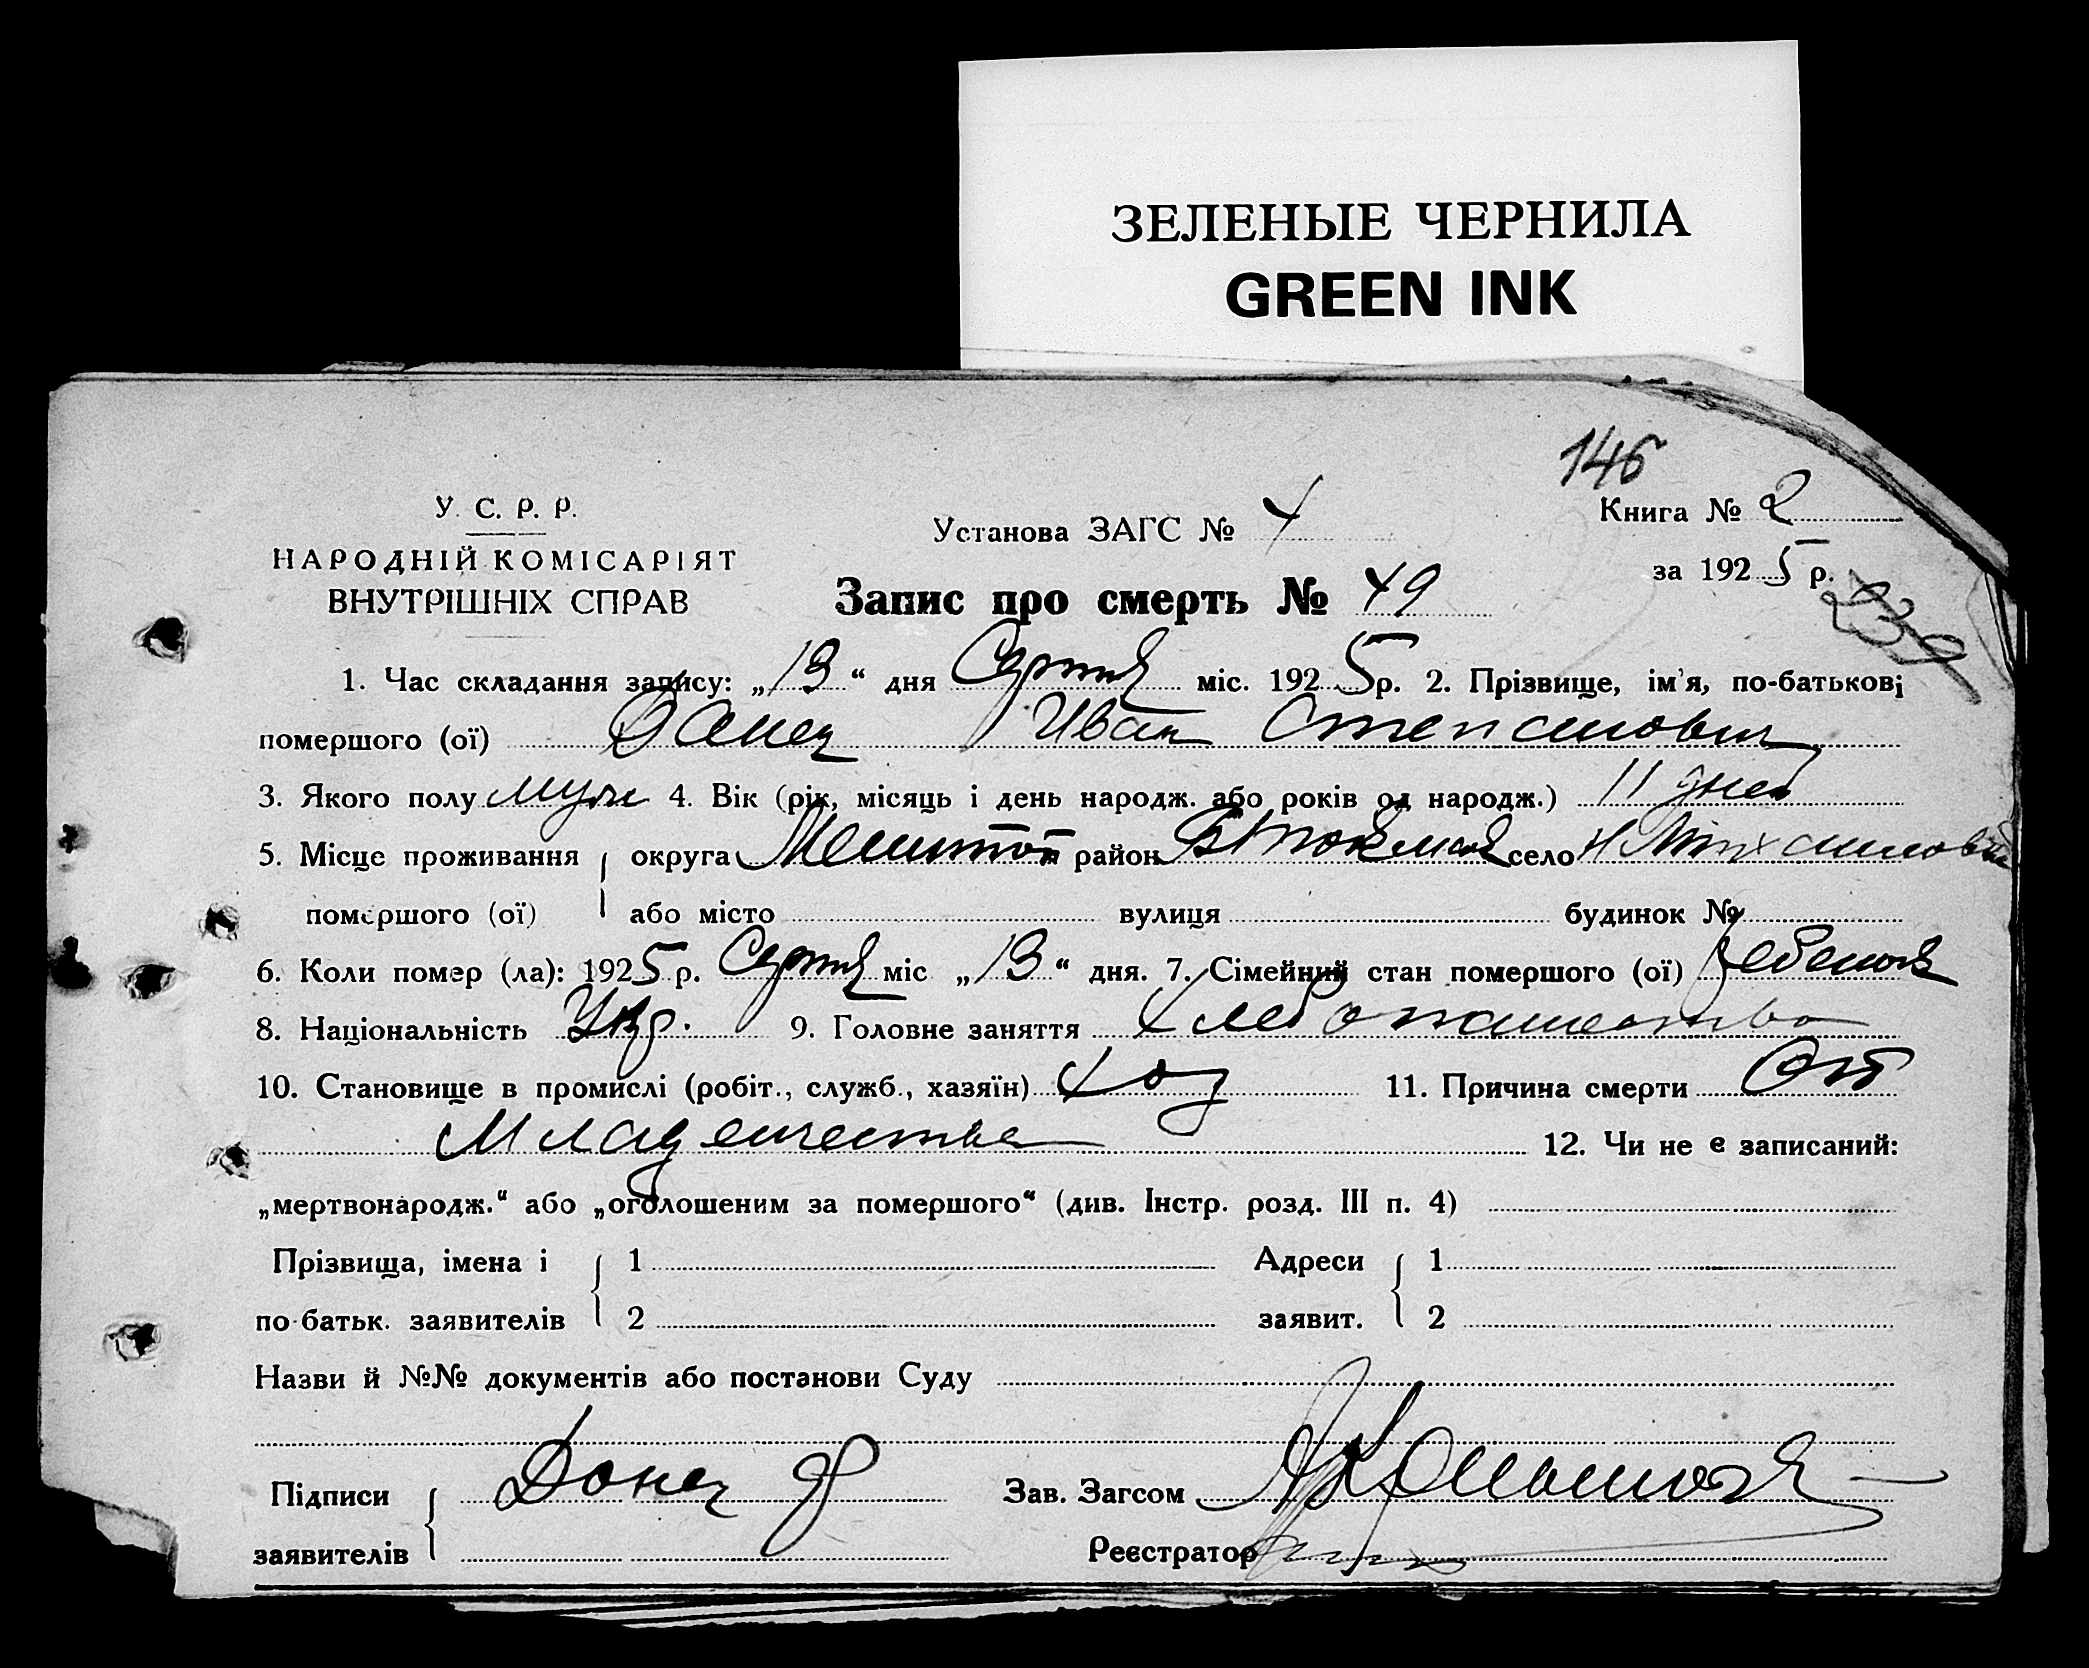 ЗЕЛЕНЫЕ ЧЕРНИЛА
GREEN INK
146
У. С. Р. Р.
НАРОДНІЙ КОМІСАРІЯТ
ВНУТРІШНІХ СПРАВ
Установа ЗАГС № 4
Книга № 2
за 1925 р.
239
Запис про смерть № 49
1. Час складання запису: „13“ дня Серпня міс. 1925 р. 2. Прізвище, ім'я, по-батькові
помершого (ої) Данец Иван Степанович
3. Якого полу муж 4. Вік (рік, місяць і день народж. або років од народж.) 11 дней
5. Місце проживання округа Мелитоп район Б Токмак село Н
помершого (ої) або місто вулиця будинок №
6. Коли помер (ла): 1925 р. Серпня міс „13“ дня. 7. Сімейний стан помершого (ої)
8. Національність Укр. 9. Головне заняття Хлебопашество
10. Становище в промислі (робіт., служб., хазяїн) хоз 11. Причина смерти От
Младенчества 12. Чи не є записаний:
„мертвонародж.“ або „оголошеним за помершого“ (див. Інстр. розд. III п. 4)
Прізвища, імена і 1 Адреси 1
по-батьк. заявителів 2 заявит. 2
Назви й №№ документів або постанови Суду
Підписи Донец Зав. Загсом
заявителів Реєстратор